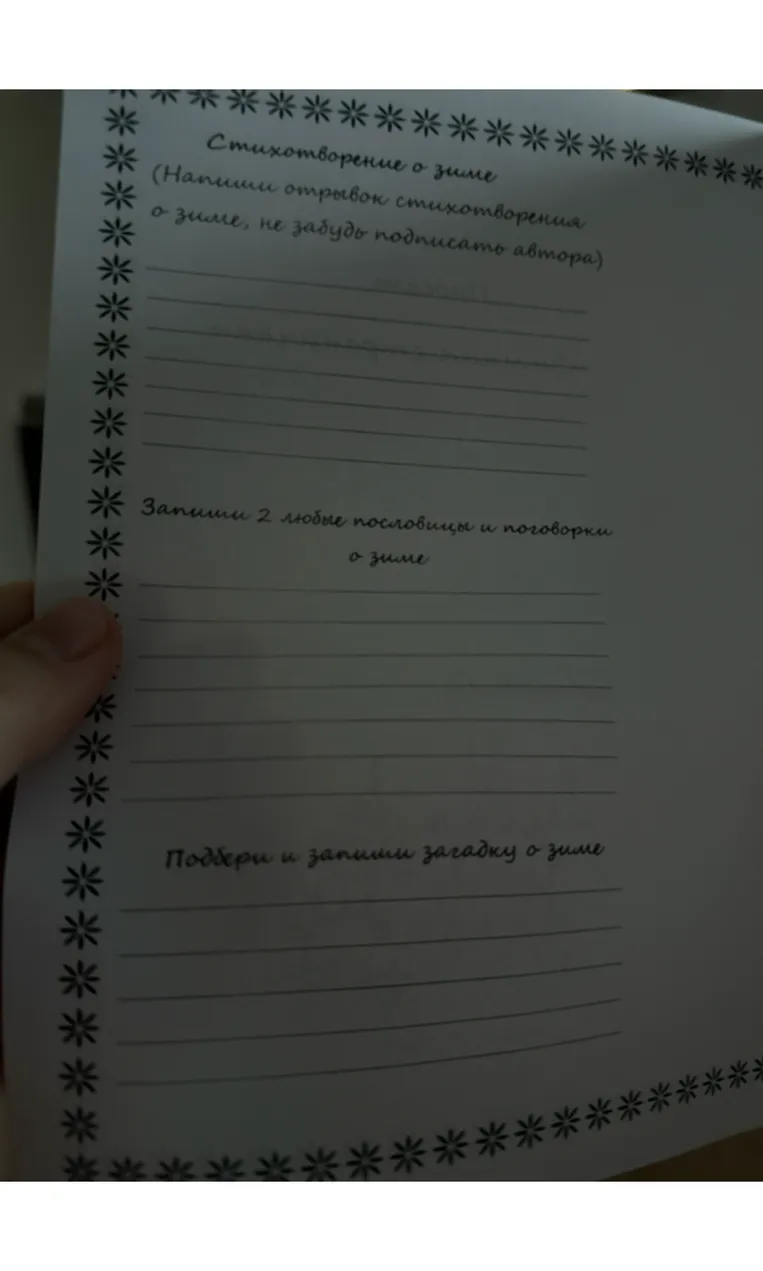 Стихотворение о зиме
(Напиши отрывок стихотворения
о зиме, не забудь подписать автора)
Запиши 2 любые пословицы и поговорки
о зиме
Подбери и запиши загадку о зиме